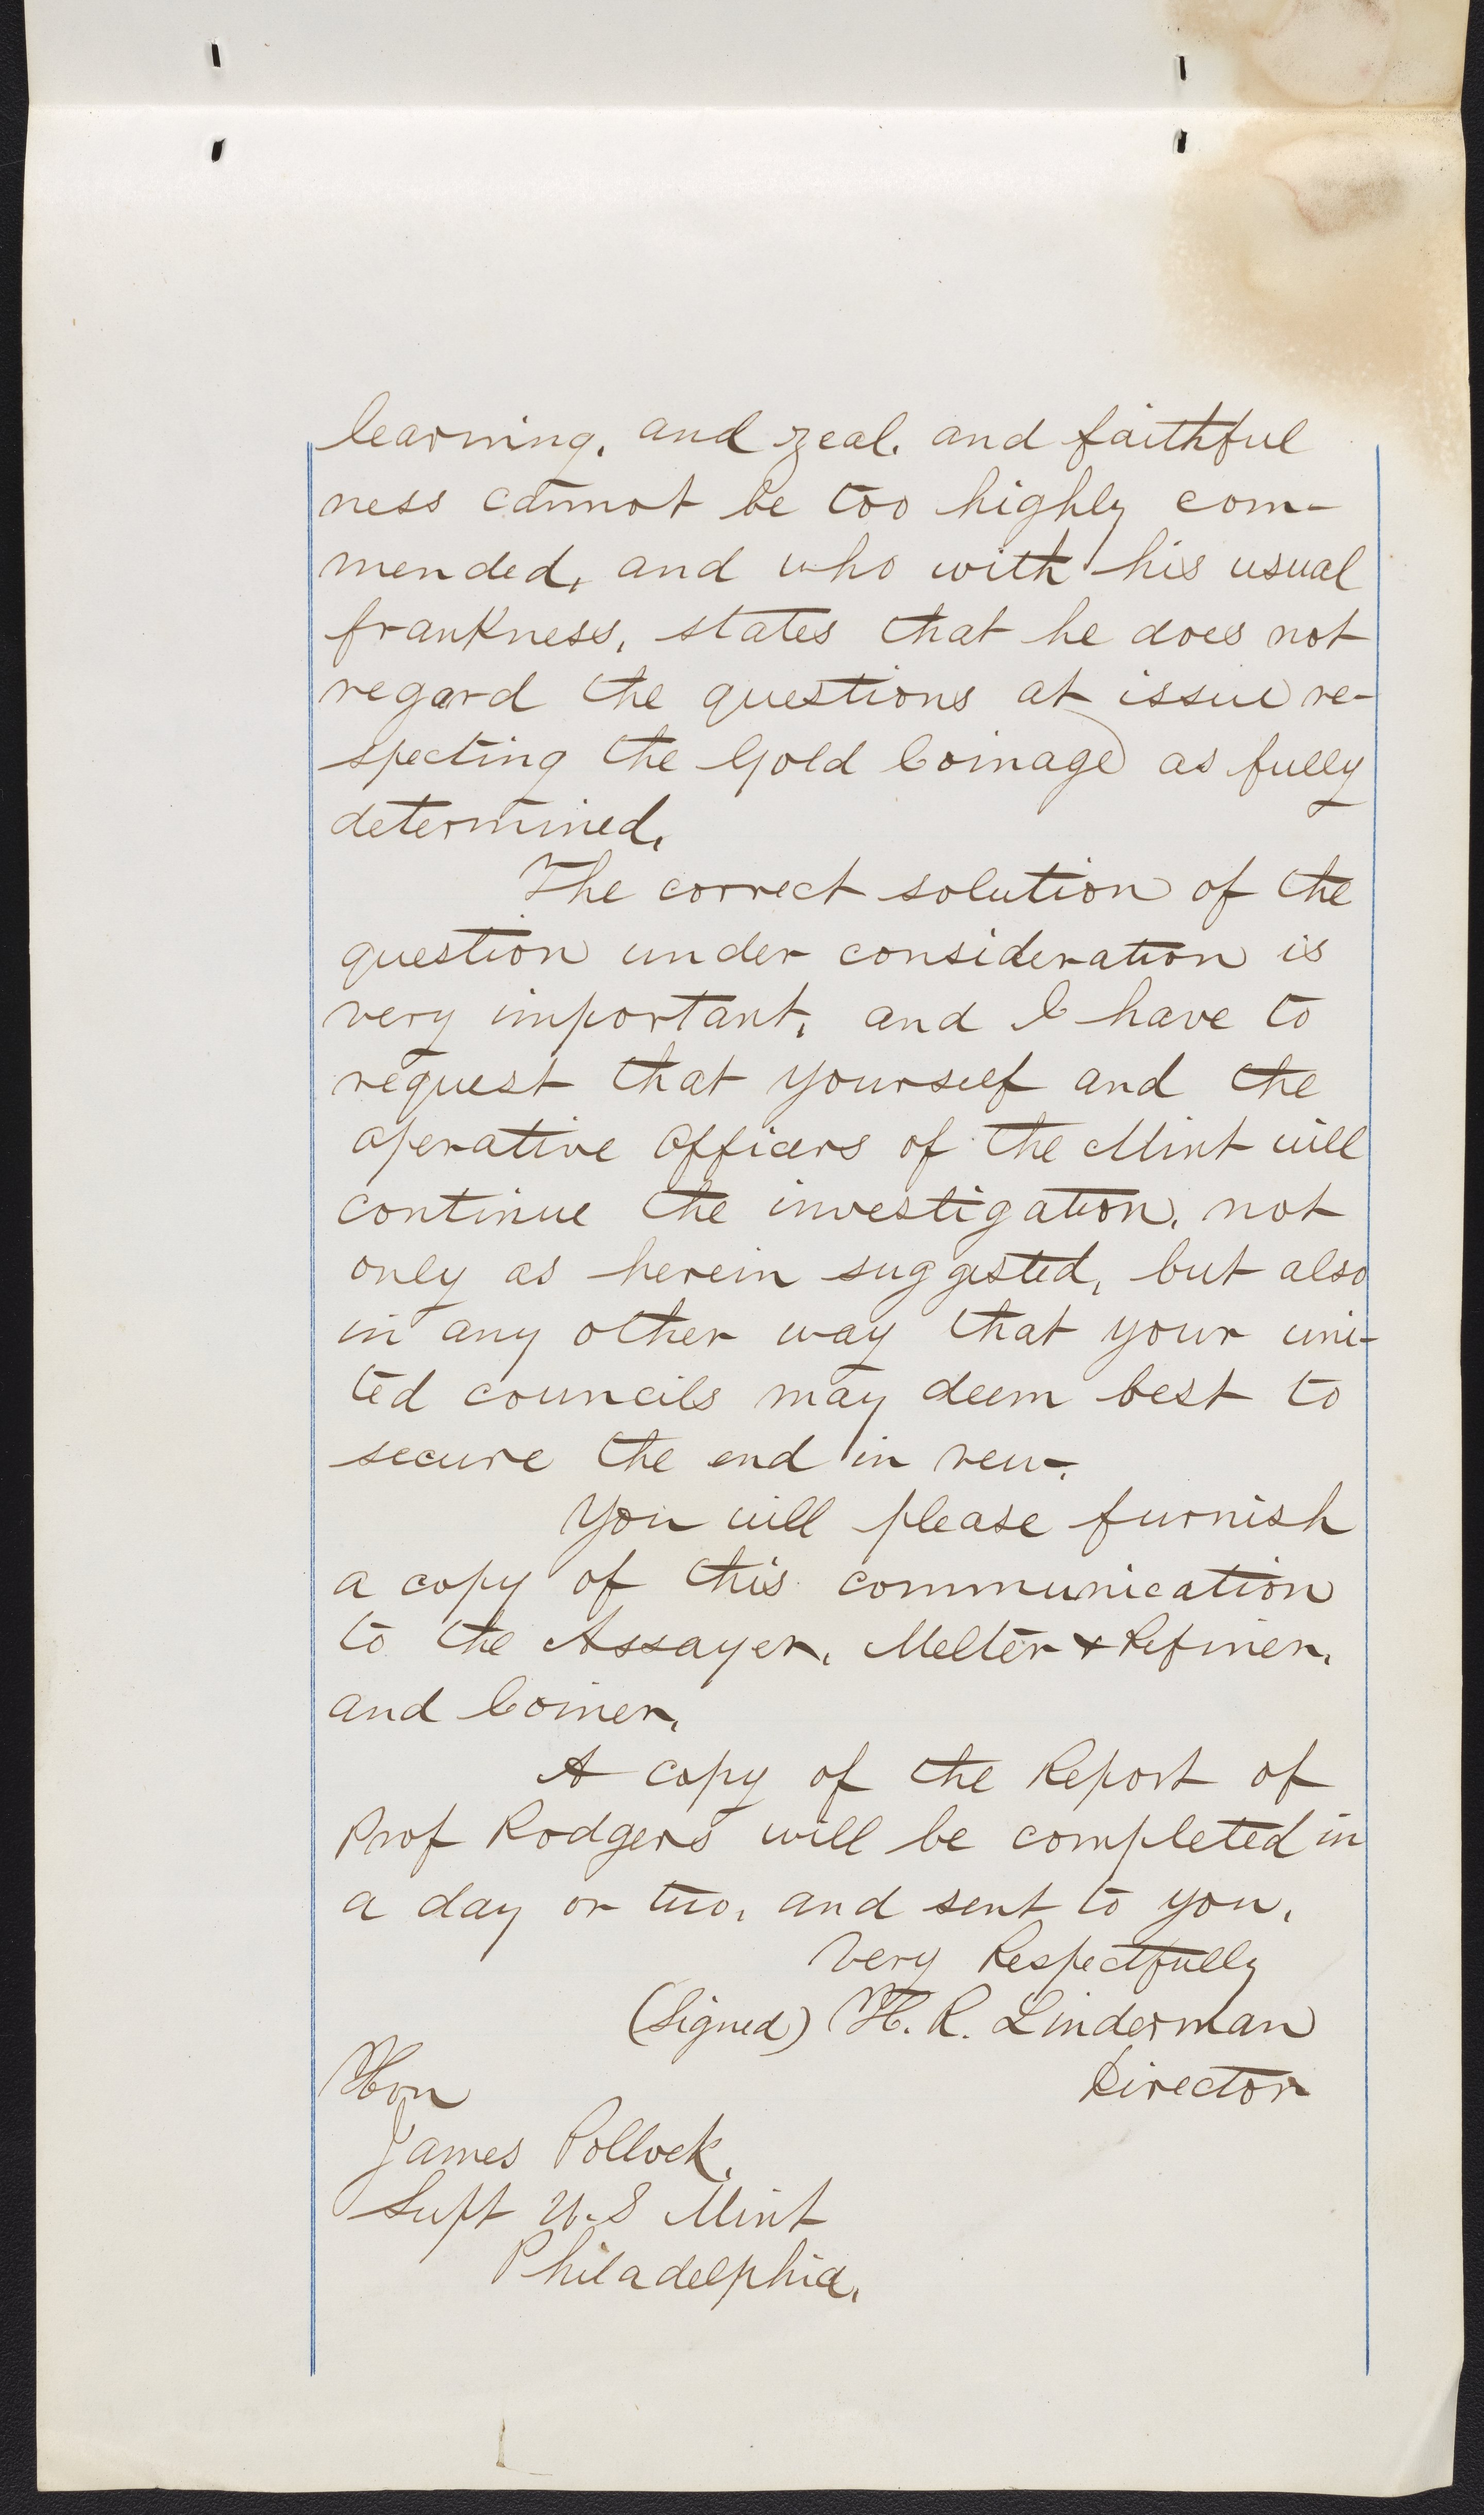 learning, and zeal, and faithful
ness cannot be too highly com-
mended, and who with his usual
frankness, states that he does not
regard the questions at issue re-
specting the Gold Coinage as fully
determined.
The correct solution of the
question under consideration is
very important, and I have to
request that yourself and the
operative Officers of the Mint will
continue the investigation, not
only as herein suggested, but also
in any other way that your uni-
ted councils may deem best to
secure the end in view.
You will please furnish
a copy of this communication
to the Assayer, Melter & Refiner,
and Coiner.
A copy of the Report of
Prof Rodgers will be completed in
a day or two, and sent to you.
Very Respectfully
(Signed) H. R. Linderman
Director
Hon
James Pollock,
Supt U.S Mint
Philadelphia.